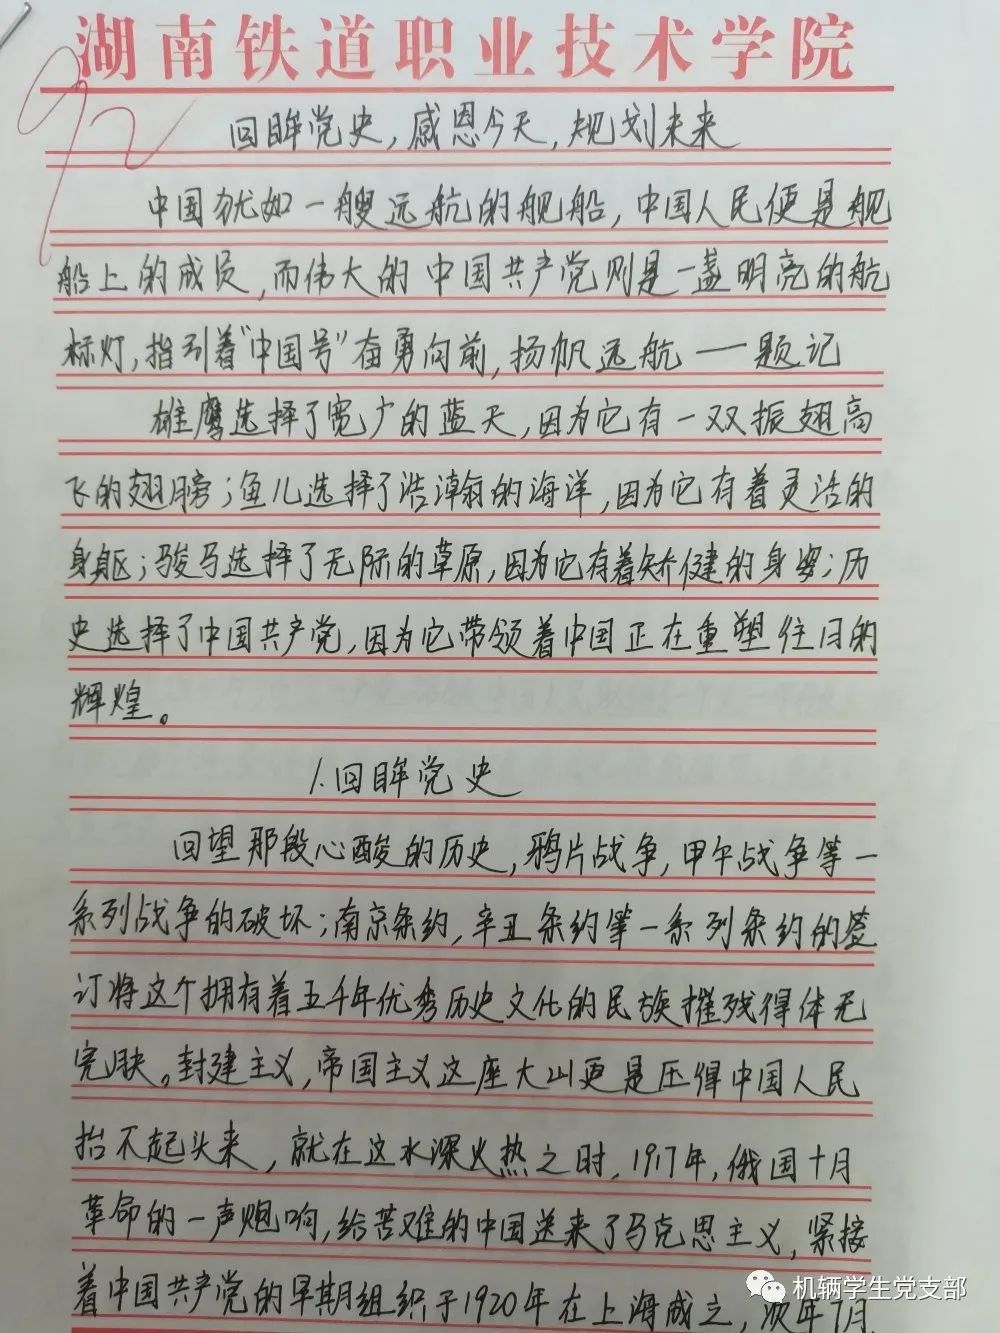 湖南铁道职业技术学院
92
回眸党史,感恩今天,规划未来
中国犹如一艘远航的舰船,中国人民便是舰
船上的成员,而伟大的中国共产党则是一盏明亮的航
标灯,指引着“中国号”奋勇向前,扬帆远航——题记
雄鹰选择了宽广的蓝天,因为它有一双振翅高
飞的翅膀;鱼儿选择了浩瀚的海洋,因为它有着灵活的
身躯;骏马选择了无际的草原,因为它有着矫健的身姿;历
史选择了中国共产党,因为它带领着中国正在重塑往日的
辉煌。
1.回眸党史
回望那段心酸的历史,鸦片战争,甲午战争等一
系列战争的破坏;南京条约,辛丑条约等一系列条约的签
订将这个拥有着五千年优秀历史文化的民族摧残得体无
完肤。封建主义,帝国主义这座大山更是压得中国人民
抬不起头来,就在这水深火热之时,1917年,俄国十月
革命的一声炮响,给苦难的中国送来了马克思主义,紧接
着中国共产党的早期组织于1920年在上海成立,次年7月
机辆学生党支部